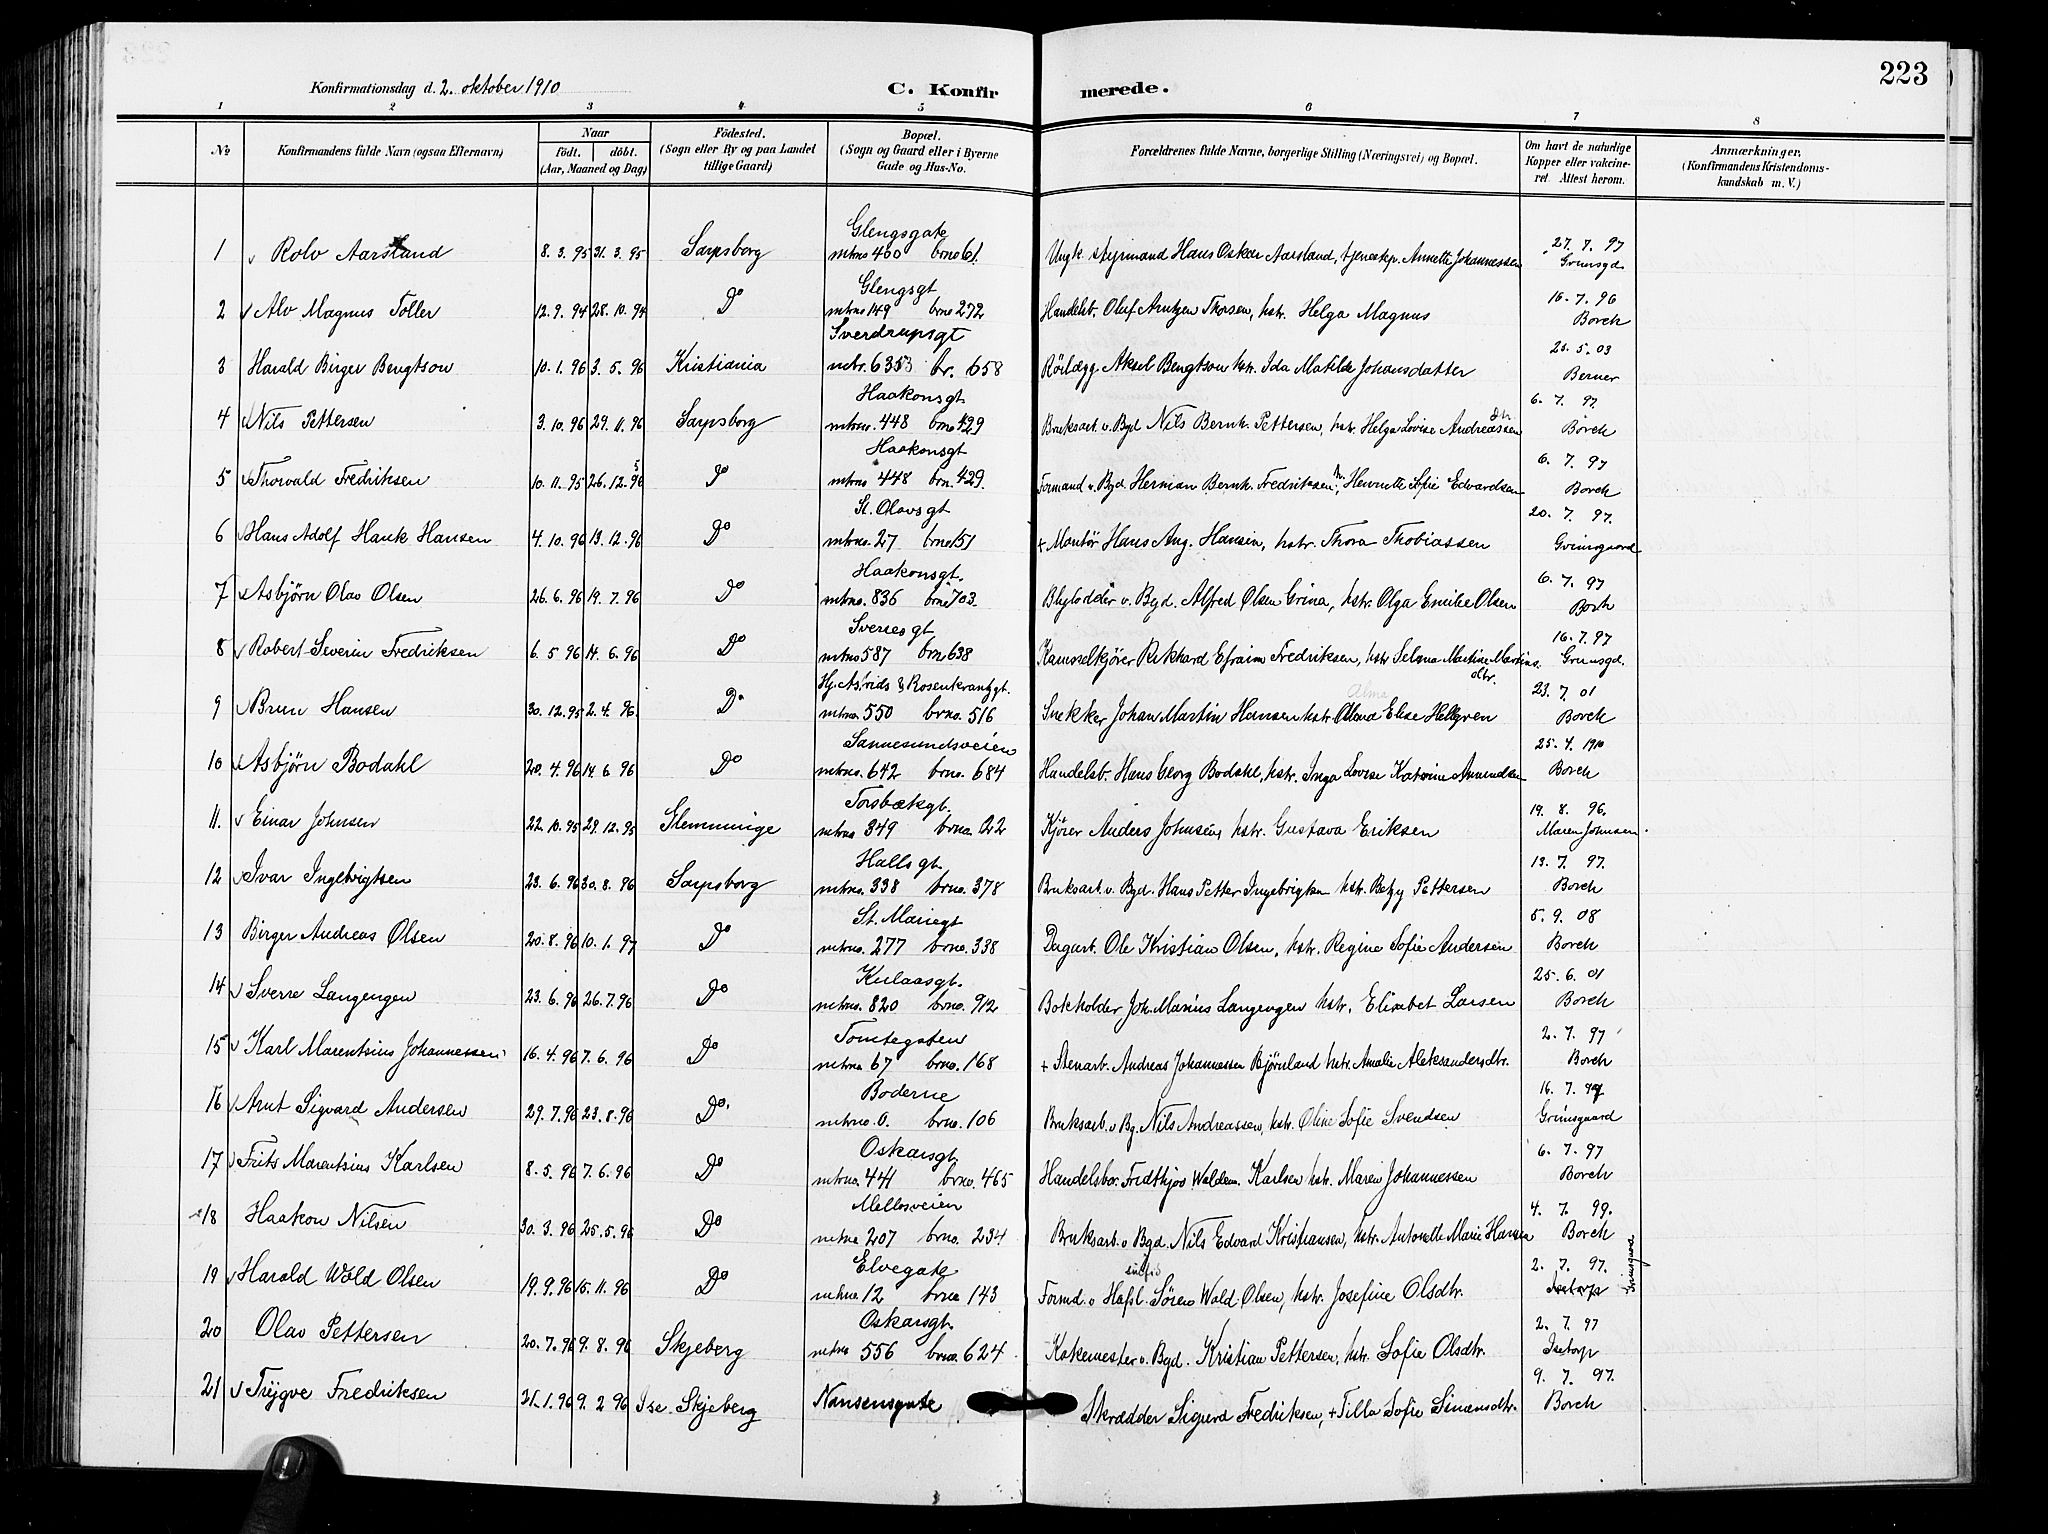 223
Konfirmationsdag d. 2. oktober 1910 C. Konfirmerede.
1 2 3 4 5 6 7 8
No Konfirmandens fulde Navn (ogsaa Efternavn) Naar født. døbt. (Aar, Maaned og Dag) Fødested. (Sogn eller By og paa Landet tillige Gaard) Bopæl. (Sogn og Gaard eller i Byerne Gade og Hus-No. Forældrenes fulde Navne, borgerlige Stilling (Næringsvei) og Bopæl. Om havt de naturlige Kopper eller vakcineret. Attest herom. Anmærkninger, (Konfirmandens Kristendomskundskab m. V.)
Glengsgate 27. 7. 97
1 Rolv Aarsland 8. 3. 95 31. 3. 95 Sarpsborg mtrno 400 brno 61. Ungk. styrmand Hans Oskar Aarsland, tjenestep. Annette Johannessen Grimsgd.
Glengsgt 16. 7. 96
2 Alv Magnus Toller 12. 9. 94 28. 10. 94 Do mtrno 149 brno 272 Handelsb. Oluf Arntzen Thorsen, hstr. Helga Magnus Borch
Sverdrupsgt 25. 5. 03
3 Harald Birger Bengtson 10. 1. 96 3. 5. 96 Kristiania mtr. 6353 br. 658 Rörlægg. Aksel Bengtson hstr. Ida Matilde Johansdatter Berner
Haakonsgt 6. 7. 97.
4 Nils Pettersen 3. 10. 96 29. 11. 96 Sarpsborg mtrno. 448 brno 429 Bruksarb. v. Byd Nils Bernh. Pettersen, hstr. Helga Lovise Andreassen dtr. Borch
Haakonsgt 6. 7. 97
5 Thorvald Fredriksen 10. 11. 95 26. 12. 96 5 Do mtrno 448 brn. 429. Formand v. Byd. Herman Bernh. Fredriksen, Henriette Sofie Edvardsen Borch
St. Olavsgt 20. 7. 97.
6 Hans Adolf Hauk Hansen 4. 10. 96 13. 12. 96 Do mtrno. 27 brno 151 + Montör Hans Aug. Hansen, hstr. Thora Thobiassen Grimsgaard
Haakonsgt. 6. 7. 97
7 Asbjørn Olav Olsen 26. 6. 96 19. 7. 96 Do mtrno. 836 brno 703. Blylodder v. Byd. Alfred Olsen Grina, hstr. Olga Emilie Olsen Borch
Sverresgt 16. 7. 97
8 Robert Severin Fredriksen 6. 5 96 14. 6. 96 Do mtrno 587 brno 638 Kamselkjører Rikhard Efraim Fredriksen, hstr Selma Martine Martins. dtr. Grimsgd.
Hj. Astrids & Rosenkrantzgt. Alma 23. 7. 01
9 Brun Hansen 30. 12. 95 2. 4. 96. Do mtrno. 550 brno. 516 Snekker Johan Martin Hansen hstr. Olava Elise Hellgren Borch
Sannesundsveien 25. 4. 1910
10 Asbjörn Bodahl 20. 4. 96 14. 6. 96 Do mtrno. 642 brno. 684 Handelsb. Hans Georg Bodahl, hstr. Inga Lovise Katrine Amundsen Borch
Torsbækgt. 19. 8. 96.
11. Einar Johnsen 22. 10. 95 29. 12. 95 Glemminge mtrno 349 brno. 22 Kjører Anders Johnsen, hstr. Gustava Eriksen Maren Johnsen.
Hallsgt. 13. 7. 97.
12 Ivar Ingebrigtsen 23. 6. 96 30. 8. 96 Sarpsborg mtrno. 338 brno. 378 Bruksarb. v. Byd. Hans Petter Ingebrigtsen hstr. Betzy Pettersen Borch
St. Mariegt 5. 9. 08
13 Birger Andreas Ølsen 20. 8. 96 10. 1. 97 Do mtrno. 277 brno. 338 Dagarb. Ole Kristian Olsen, hstr. Regine Sofie Andersen Borch
Kulaasgt. 25. 6. 01
14 Sverre Langengen 23. 6. 96 26. 7. 96 Do mtrno. 820 brno. 912 Bokholder Joh. Marius Langengen hstr. Elisabet Larsen Borch
Tomtegaten 2. 7. 97
15 Karl Marentsius Johannessen 16. 4. 96 7. 6. 96 Do mtrno 67 brno. 168 + Stenarb. Andreas Johannessen Bjørnland hstr. Amalie Aleksandersdtr. Borch
Boderne 16. 7. 97
16 Arnt Sigvard Andersen 29. 7. 96 23. 8. 96 Do. mtrno. 0. brno. 106 Bruksarb. v. Bg. Nils Andreassen, hstr. Oline Sofie Svendsen Grimsgaard
Oskarsgt. 6. 7. 97
17 Frits Marentsius Karlsen 8. 5. 96 7. 6. 96 Do mtrno. 441 brno. 465 Handelsbor. Fridthjov Waldem. Karlsen hstr. Maren Johannessen Borch
Mellosveien 4. 7. 99.
18 Haakon Nilsen 30. 3. 96 25. 5. 96 Do mtrno 207 brno. 234 Bruksarb. v Byd. Nils Edvard Kristiansen, hstr. Antonette Marie Hansen Borch
Elvegate 2. 7. 97.
19 Harald Wold Olsen 19. 9. 96 15. 11. 96 Do mtrno 12 brno 143 Formd. v Hafsl. Sören Wold Olsen, hstr. Josefine Olsdtr. Isetorp Grimsgaard
Oskarsgt. 2. 7. 97
20 Olav Pettersen 20. 7. 96 9. 8. 96 Skjeberg mtrno 556 brno. 624 Kokemester v. Byd. Kristian Pettersen, hstr. Sofie Olsdtr. Isetorp
9. 7. 97.
21 Trygve Fredriksen 31. 1. 96 9. 2 96 Ise. Skjeberg Nansensgate Skrædder Sigurd Fredriksen, + Tilla Sofie Simensdtr. Borch